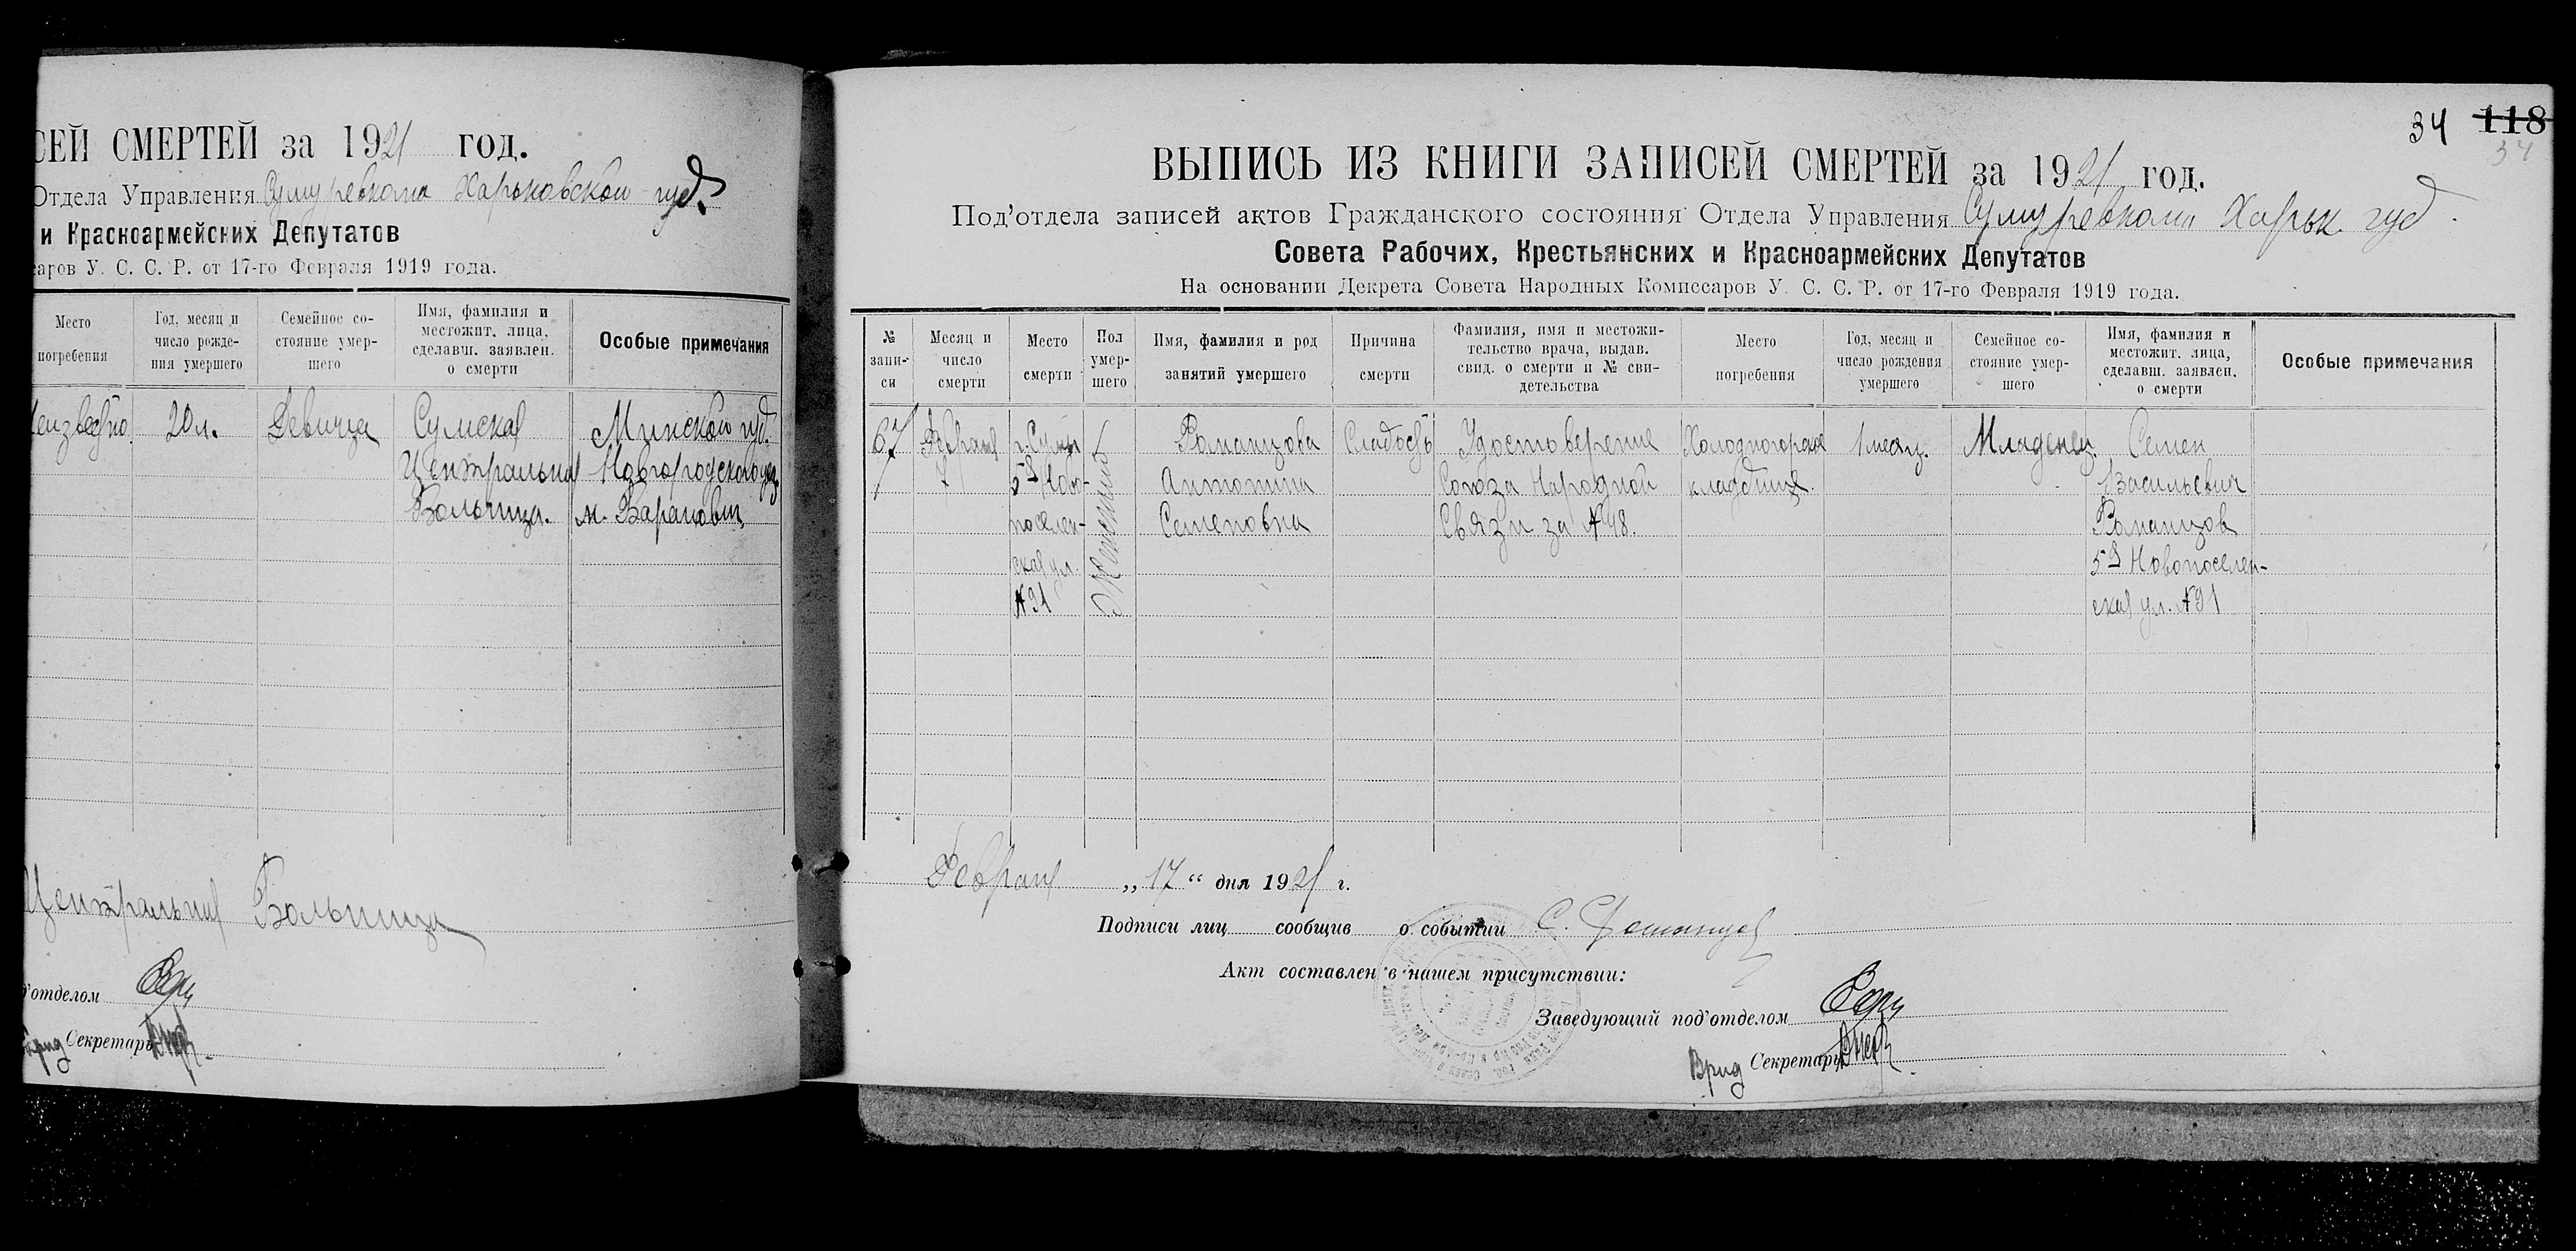 СЕЙ СМЕРТЕЙ за 1921 год.
Отдела Управления Сумуревкома Харьковской губ.
и Красноармейских Депутатов
саров У. С. С. Р. от 17-го Февраля 1919 года.
Место погребения
Год, месяц и число рождения умершего
Семейное состояние умершего
Имя, фамилия и местожит. лица, сделавш. заявлен. о смерти
Особые примечания
20 л.
Девица
Сумская
Центральная
Больница.
Минской губ.
Новогородского уез.
м. Барановичи
Центральная Больница
д'отделом
Секретарь
34 118
34
ВЫПИСЬ ИЗ КНИГИ ЗАПИСЕЙ СМЕРТЕЙ за 1921 год.
Под'отдела записей актов Гражданского состояния Отдела Управления Сумуревкома Харьк. губ.
Совета Рабочих, Крестьянских и Красноармейских Депутатов
На основании Декрета Совета Народных Комиссаров У. С. С. Р. от 17-го Февраля 1919 года.
№ запи-си
Месяц и число смерти
Место смерти
Пол умер-шего
Имя, фамилия и род занятий умершего
Причина смерти
Фамилия, имя и местожи-тельство врача, выдав. свид. о смерти и № сви-детельства
Место погребения
Год, месяц и число рождения умершего
Семейное со-стояние умер-шего
Имя, фамилия и местожит. лица, сделавш. заявлен. о смерти
Особые примечания
67
Февраля
7
г. Сумы
5я Ново-
поселен-
ская ул.
№ 91
Женский
Романцова
Антонина
Семеновна
Слабость
Удостоверение
Союза Народной
Связи за № 48.
Холодногорское
кладбище.
1 месяц.
Младенец.
Семен
Васильевич
Романцов
5я Новопоселен-
ская ул. № 91
Февраля „17“ дня 1921 г.
Подписи лиц сообщив о событии С. Романцов
Акт составлен в нашем присутствии:
Заведующий под'отделом
Врид Секретарь